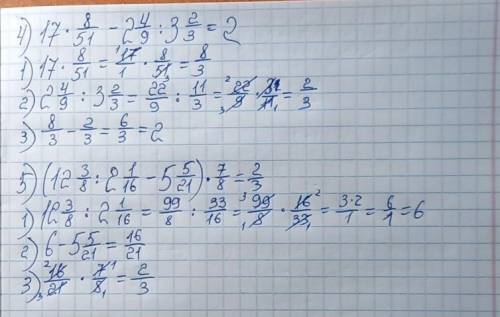 4) 17 · 8/51 - 2 4/9 : 3 2/3 = 2
1) 17 · 8/51 = 17/1 · 8/51 = 8/3
2) 2 4/9 : 3 2/3 = 22/9 : 11/3 = 22/9 · 31/11 = 2/3
3) 8/3 - 2/3 = 6/3 = 2
5) (12 3/8 : 2 1/16 - 5 5/21) · 7/8 = 2/3
1) 12 3/8 : 2 1/16 = 99/8 : 33/16 = 99/8 · 16/33 = 3·2/1 = 6/1 = 6
2) 6 - 5 5/21 = 16/21
3) 16/21 · 7/8 = 2/3